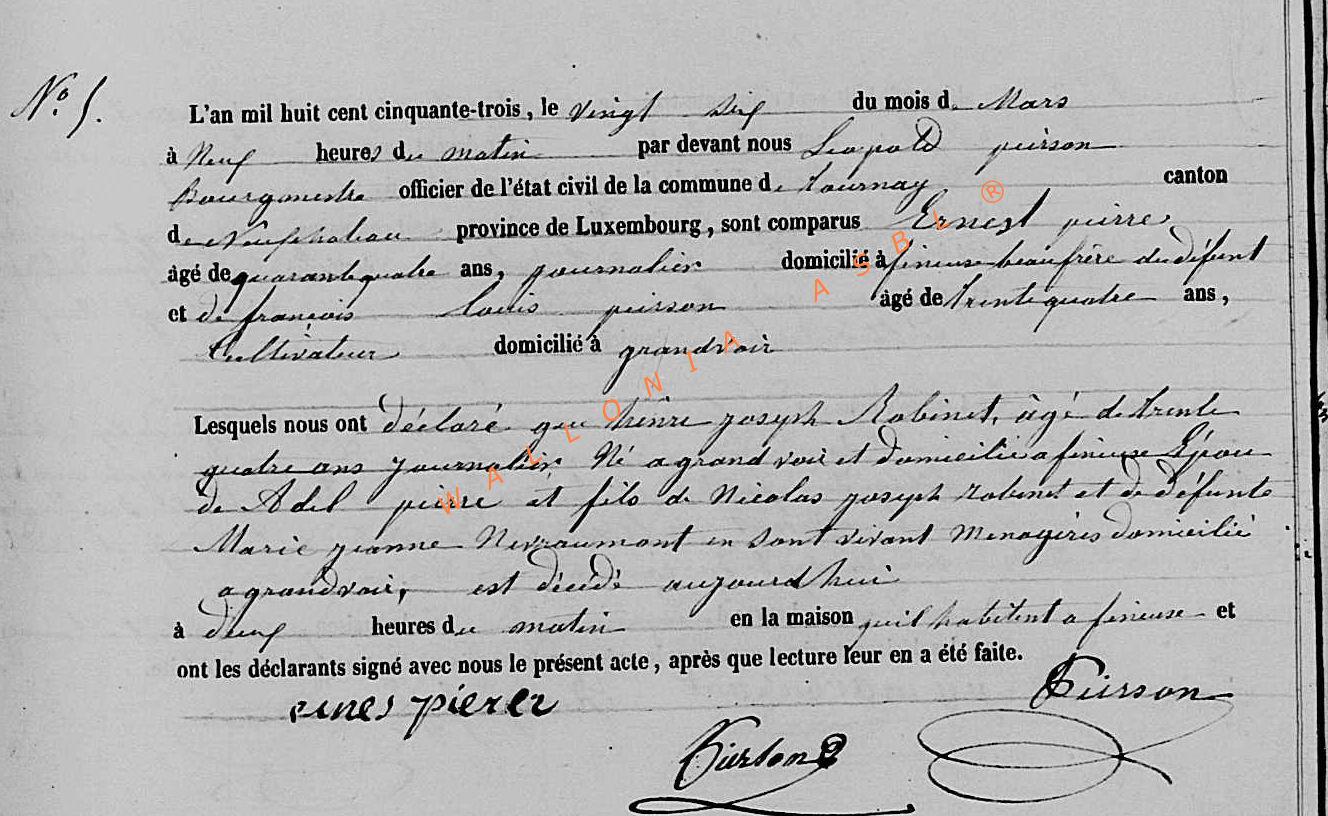 N° 5.
L'an mil huit cent cinquante-trois, le vingt six du mois de Mars
à Neuf heures du matin par devant nous Leopold peirson
Bourgmestre officier de l'état civil de la commune de tournay canton
de Neufchateau province de Luxembourg, sont comparus Ernest pierre
âgé de quarante quatre ans, journalier domicilié à fineuse beaufrère du défunt
et de françois Louis peirson âgé de trente quatre ans,
Cultivateur domicilié à grandvoir
Lesquels nous ont déclaré que henri joseph Robinet, âgé de trente
quatre ans journalier Né a grandvoir et domicilié a fineuse Epou
de Adel pierre et fils de Nicolas joseph robinet et de défunte
Marie jeanne Nevraumont en sont vivant Menagéres domicilié
a grandvoir, est décédé aujourdhui
à deux heures du matin en la maison quil habitent a fineuse et
ont les déclarants signé avec nous le présent acte, après que lecture leur en a été faite.
Peirson
ernes pierer
WALLONIA ASBL ®